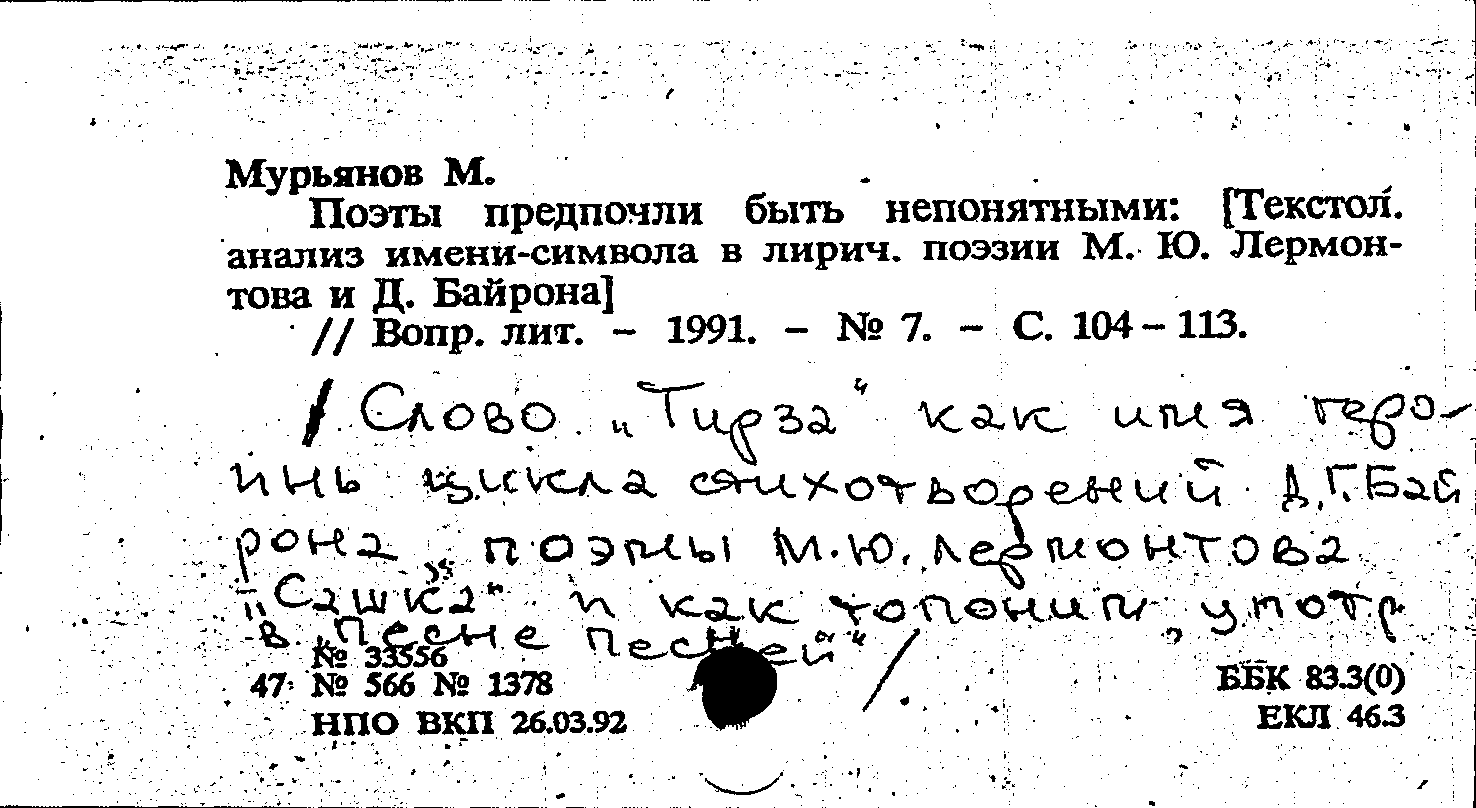 Мурьянов М.
Поэты предпочли быть непонятными: [Текстол.
анализ имени-символа в лирич. поэзии М. Ю. Лермон-
това и Д. Байрона]
// Вопр. лит. – 1991. – № 7. – С. 104–113.
/ Слово „Тирза“ как имя геро-
инь цикла стихотворений Д.Г. Бай
рона, поэмы М.Ю. Лермонтова
„Сашка“ и как топоним, употр.
в „Песне Песней“ /.
№ 33556
47 № 566 № 1378
ББК 83.3(0)
НПО ВКП 26.03.92
ЕКЛ 46.3